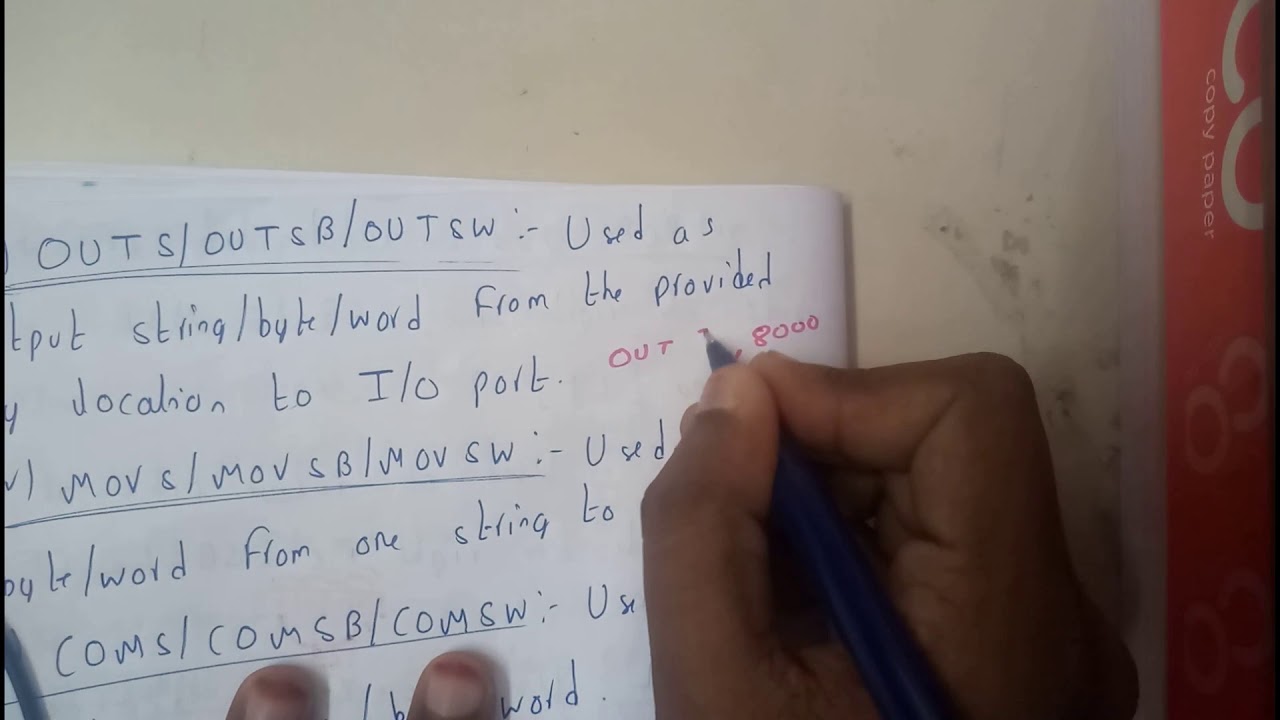 OUTS/OUTSB/OUTSW :- Used as
tput string/byte/word from the provided
OUT , 8000
y location to I/O port.
v) MOVS/MOVSB/MOVSW :- Used
byte/word from one string to
COMS/COMSB/COMSW :- Use
word.
copy paper